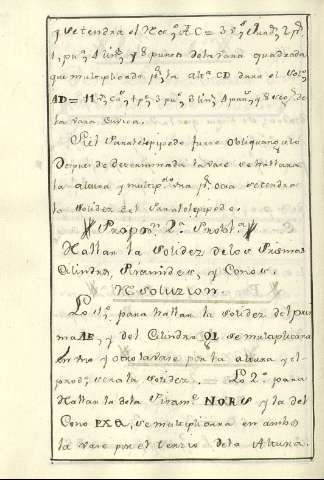 y se tendra el Rec.o AC = 3 v.s quad.s 2 p.s
1, pulg.a 4 lin.s y 8 puntos dela vara quadrada
que multiplicado p.r la alt.a CD dara el Sol.o
AD = 11 v.s cu.s 1 p.e 3 pul.s 8 lin.s 4 pun.s y 8 seg.s de
la vara cuvica.
Si el Paralelepipedo fuere obliquangulo
Despues de determinada la vase se hallara
la altura y multip.do una p.r otra se tendra
la solidez del Paralelepipedo.
Propo.n 2.a Probl.a
Hallar la Solidez delos Prismas
Cilindros, Piramides, y Conos.
Resoluzion
Lo 1.o para hallar la solidez del pris
ma AE, y del Cilindro QL se multiplicara
en uno y otro la vase por la altura y el
prod.o sera la solidez. Lo 2.o para
Hallar la dela Piram.e NORS y la del
Cono PXQ, se multiplicara en ambos
la vase por el tercio dela Altura.